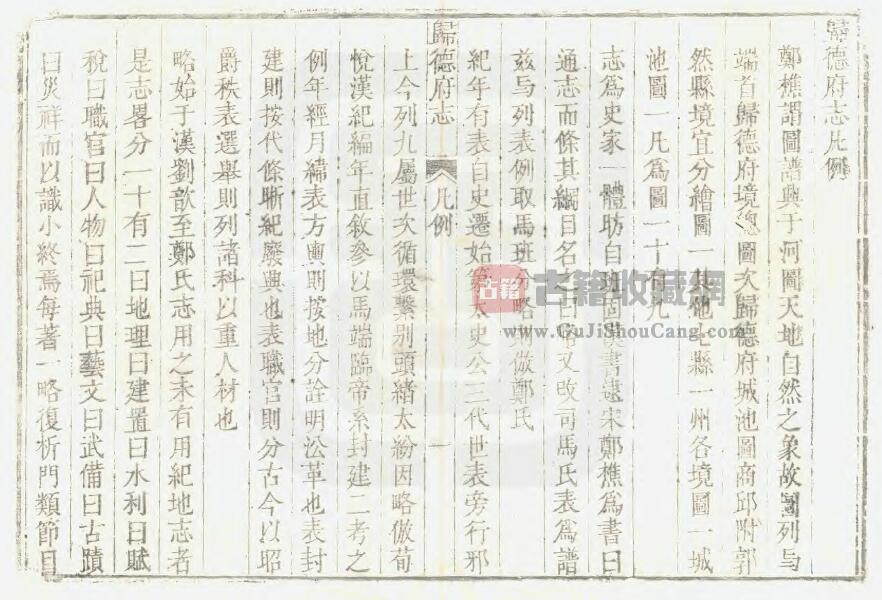 歸德府志凡例
鄭樵謂圖譜興于河圖天地自然之象故圖列与
端首歸德府境總圖次歸德府城池圖商邱附郭
然縣境宜分繪圖一其他七縣一州各境圖一城
池圖一凡爲圖一十有九
志爲史家一體昉自班固漢書逮宋鄭樵爲書曰
通志而條其綱目名之曰略又攺司馬氏表爲譜
兹与列表例取馬班分略則倣鄭氏
紀年有表自史遷始第太史公三代世表旁行邪
歸德府志
凡例
一
上今列九屬世次循環繫别頭緒太紛因略倣荀
悅漢紀編年直敘參以馬端臨帝系封建二考之
例年經月緯表方輿則按地分詮明沿革也表封
建則按代條晰紀廢興也表職官則分古今以昭
爵秩表選舉則列諸科以重人材也
略始于漢劉歆至鄭氏志用之未有用紀地志者
是志畧分一十有二曰地理曰建置曰水利曰賦
稅曰職官曰人物曰祀典曰藝文曰武備曰古蹟
曰災祥而以識小終焉每著一略復析門類節目
古籍 古籍收藏網
www.GuJiShouCang.com